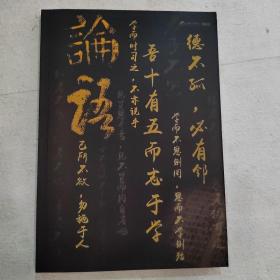 德不孤，必有邻
学而不思则罔，思而不学则殆
吾十有五而志于学
学而时习之，不亦说乎
論語
己所不欲，勿施于人